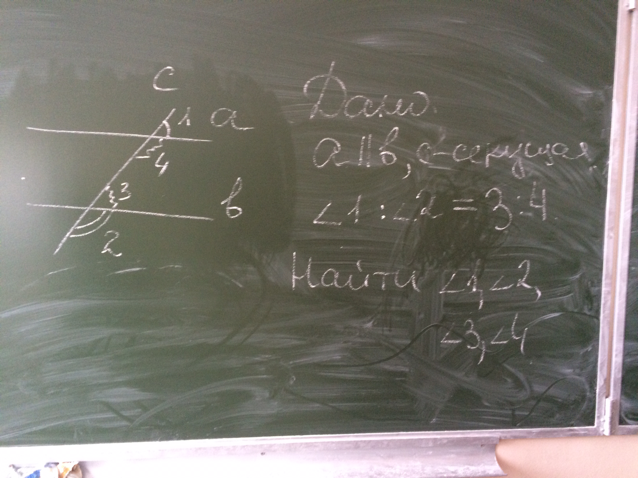 c
1 a
4
3
b
2
Дано
a||b, c-секущая
∠1 : ∠2 = 3:4.
Найти ∠1, ∠2,
∠3, ∠4